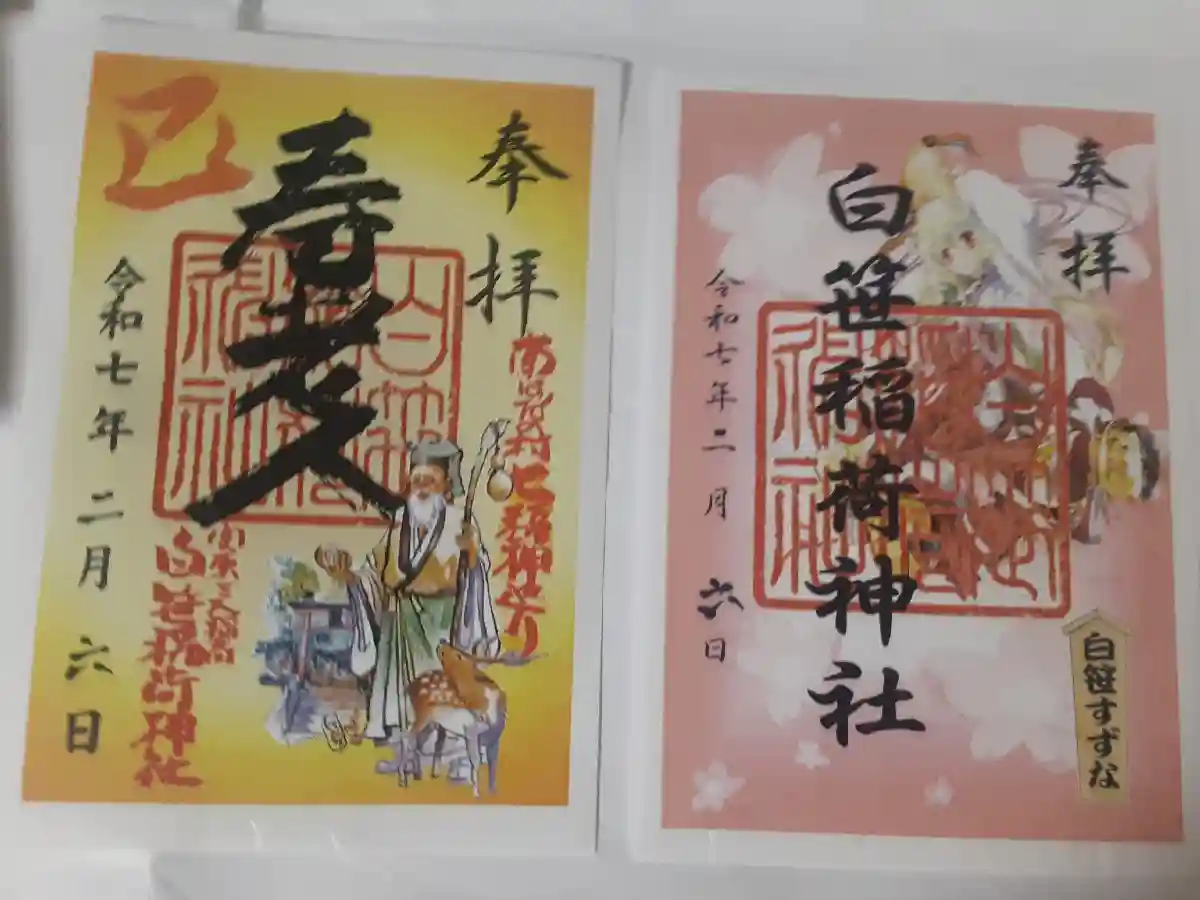 奉拝
寿老人
巳
令和七年 二月 六日
白笹稲荷神社
奉拝
白笹稲荷神社
令和七年二月 六日
白笹すずな